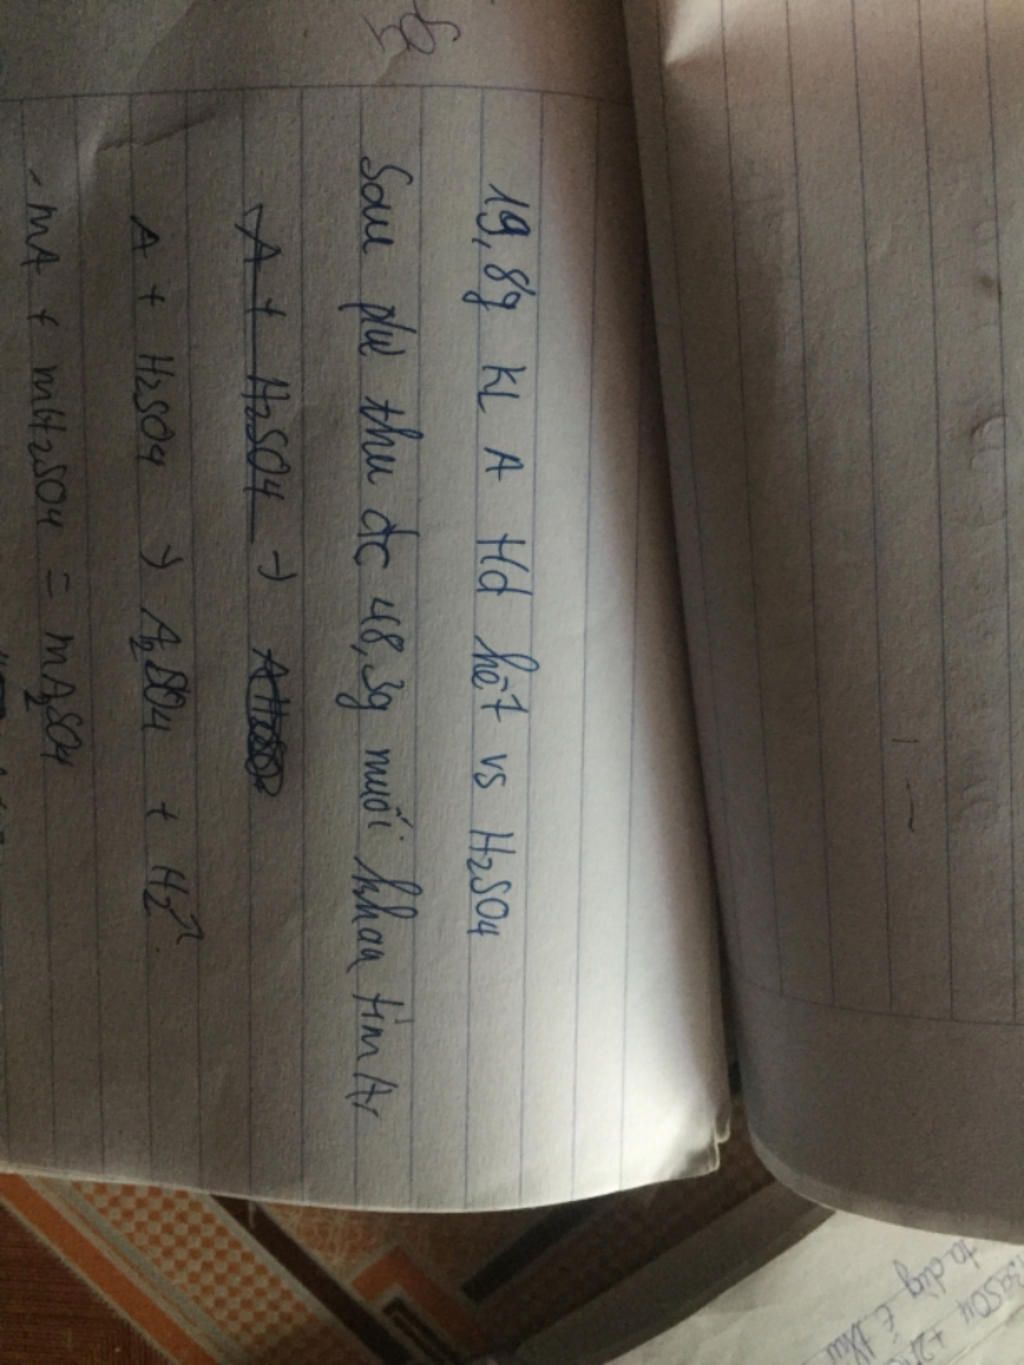 19,8g KL A Hd hết vs H₂SO₄
Sau pứ thu đc 48,3g muối khan tìm A
A + H₂SO₄ →
A + H₂SO₄ → A₂SO₄ + H₂↑
- mA + mH₂SO₄ = mA₂SO₄